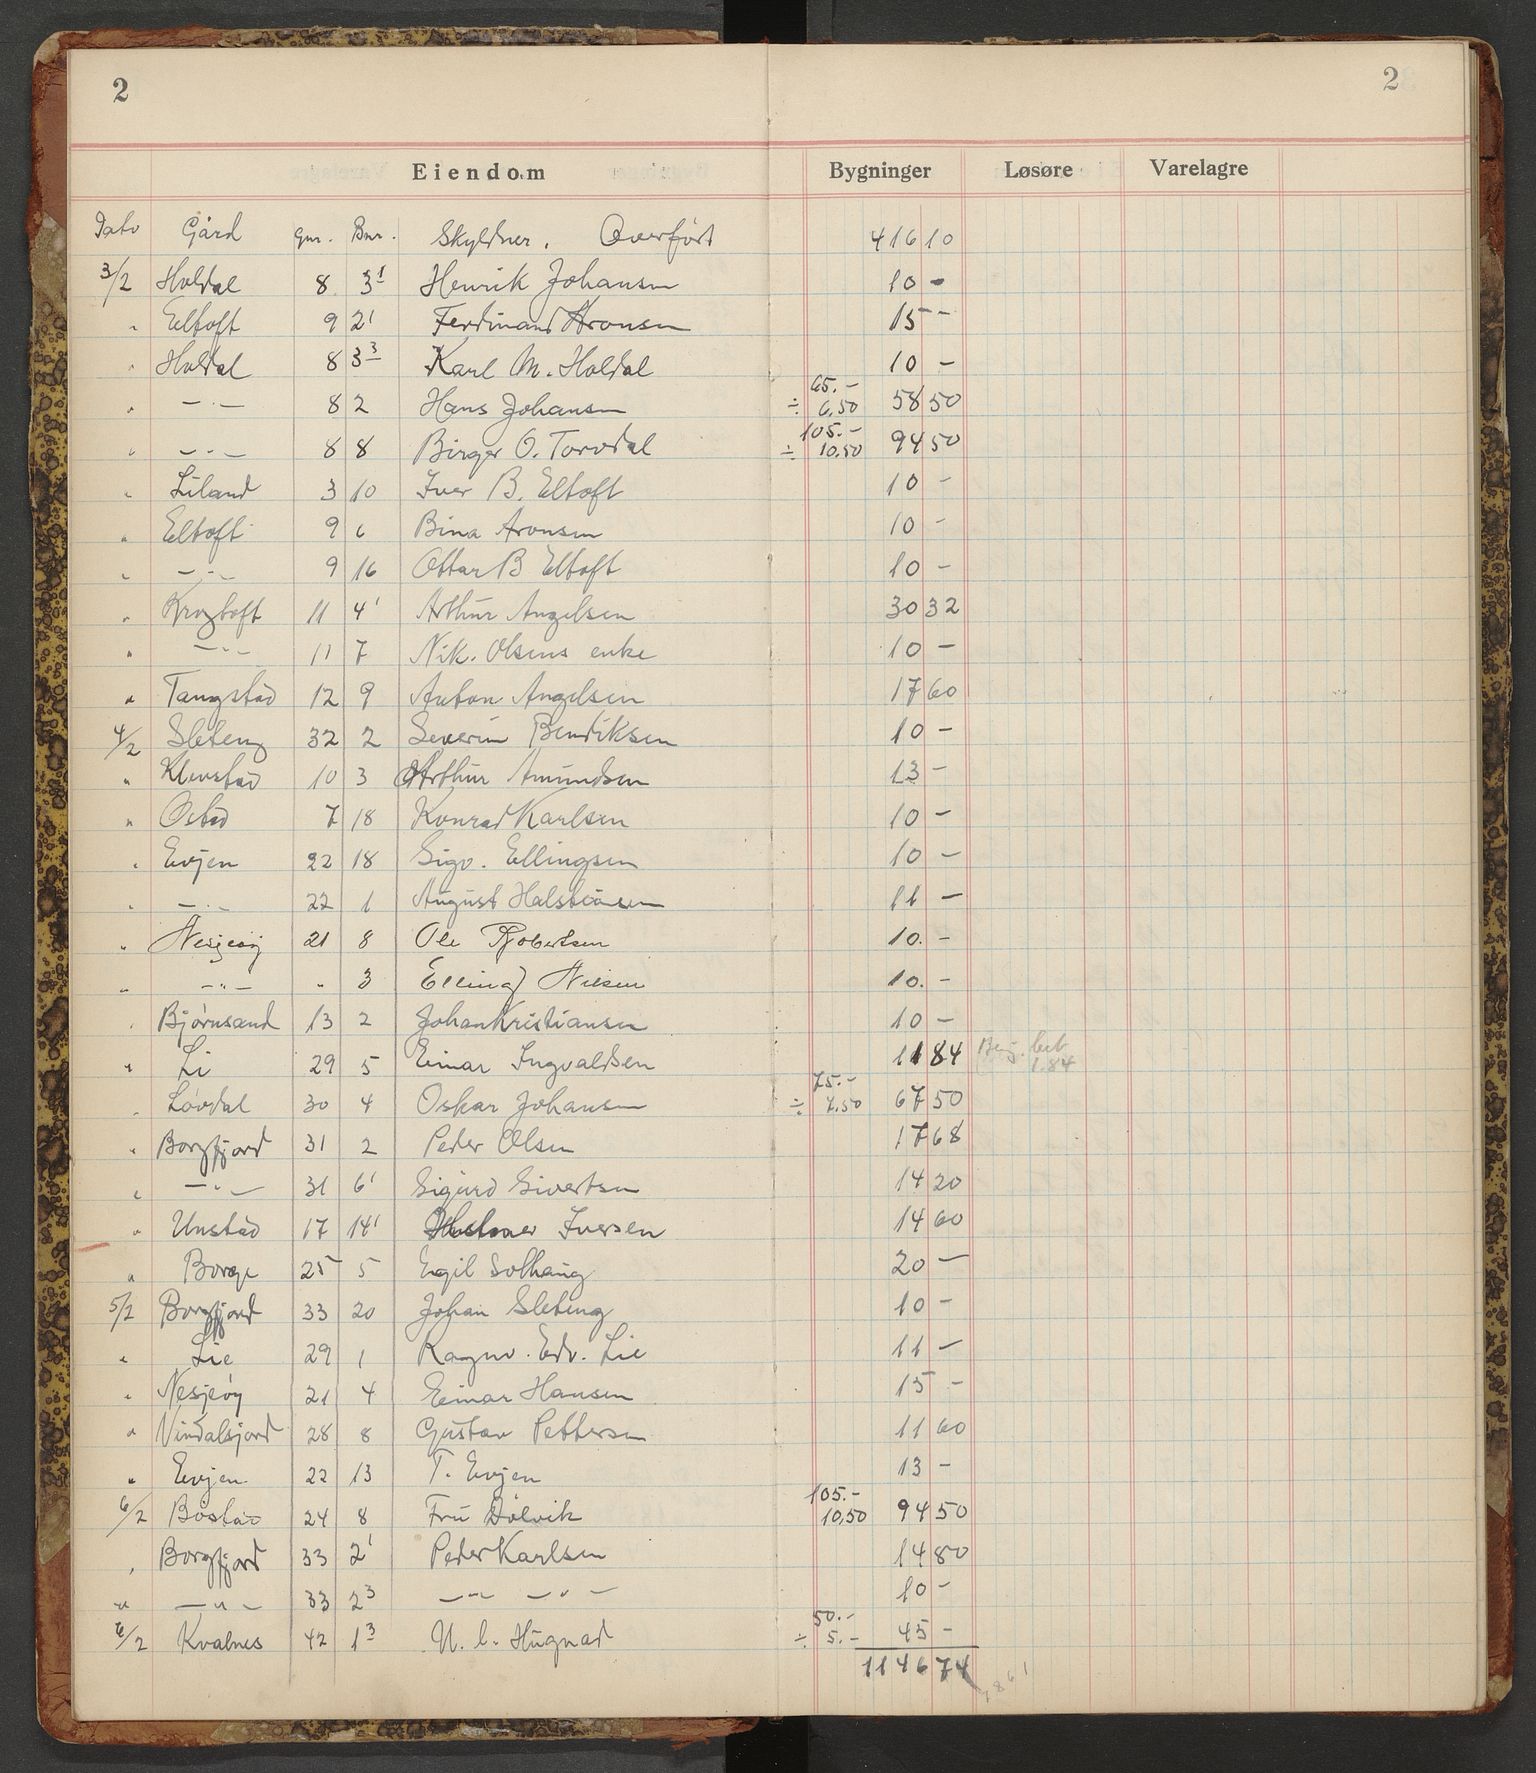 2 2
Eiendom Bygninger Løsøre Varelagre
Dato Gård Gnr. Bnr. Skyldner. Overført 416 10
3/2 Holdal 8 3¹ Henrik Johansen 10 -
" Eltoft 9 2¹ Ferdinand Aronsen 15 -
" Holdal 8 3³ Karl M. Holdal 10 -
65.-
" -"- 8 2 Hans Johansen ÷ 6,50 58 50
105.-
" -"- 8 8 Birger O. Torvdal ÷ 10.50 94 50
" Liland 3 10 Iver B. Eltoft 10 -
" Eltoft 9 6 Bina Aronsen 10 -
" -"- 9 16 Ottar B Eltoft 10 -
" Krogtoft 11 4¹ Arthur Angelsen 30 32
" -"- 11 7 Nik. Olsens enke 10 -
" Tangstad 12 9 Anton Angelsen 17 60
4/2 Sleteng 32 2 Severin Bendiksen 10 -
" Klevstad 10 3 Arthur Amundsen 13 -
" Ostad 7 18 Konrad Karlsen 10 -
" Evjen 22 18 Sigv. Ellingsen 10 -
" -"- 22 1 August Halstensen 11 -
" Nesjeøy 21 8 Ole Robertsen 10. -
" -"- " 3 Elling Nilsen 10. -
" Bjørnsand 13 2 Johan Kristiansen 10 -
" Li 29 5 Einar Ingvaldsen 11 84 Beg. bet
1.84
75.-
" Løvdal 30 4 Oskar Johansen ÷ 7.50 67 50
" Borgfjord 31 2 Peder Olsen 17 68
" -"- 31 6¹ Sigurd Sivertsen 14 20
" Unstad 17 14¹ Iversen 14 60
" Borge 25 5 Egil Solhaug 20 -
5/2 Borgfjord 33 20 Johan Sleteng 10 -
" Lie 29 1 Ragnv. Edv. Lie 11 -
" Nesjeøy 21 4 Einar Hansen 15 -
" Vindalsjord 28 8 Gustav Pettersen 11 60
" Evjen 22 13 T. Evjen 13 -
105.-
6/2 Bøstad 24 8 Fru Dølvik 10,50 94 50
" Borgfjord 33 2¹ Peder Karlsen 14 80
" -"- 33 2³ -"- -"- 10 -
50.-
6/2 Kvalnes 42 1³ Hugnad ÷ 5.- 45 -
1146 74